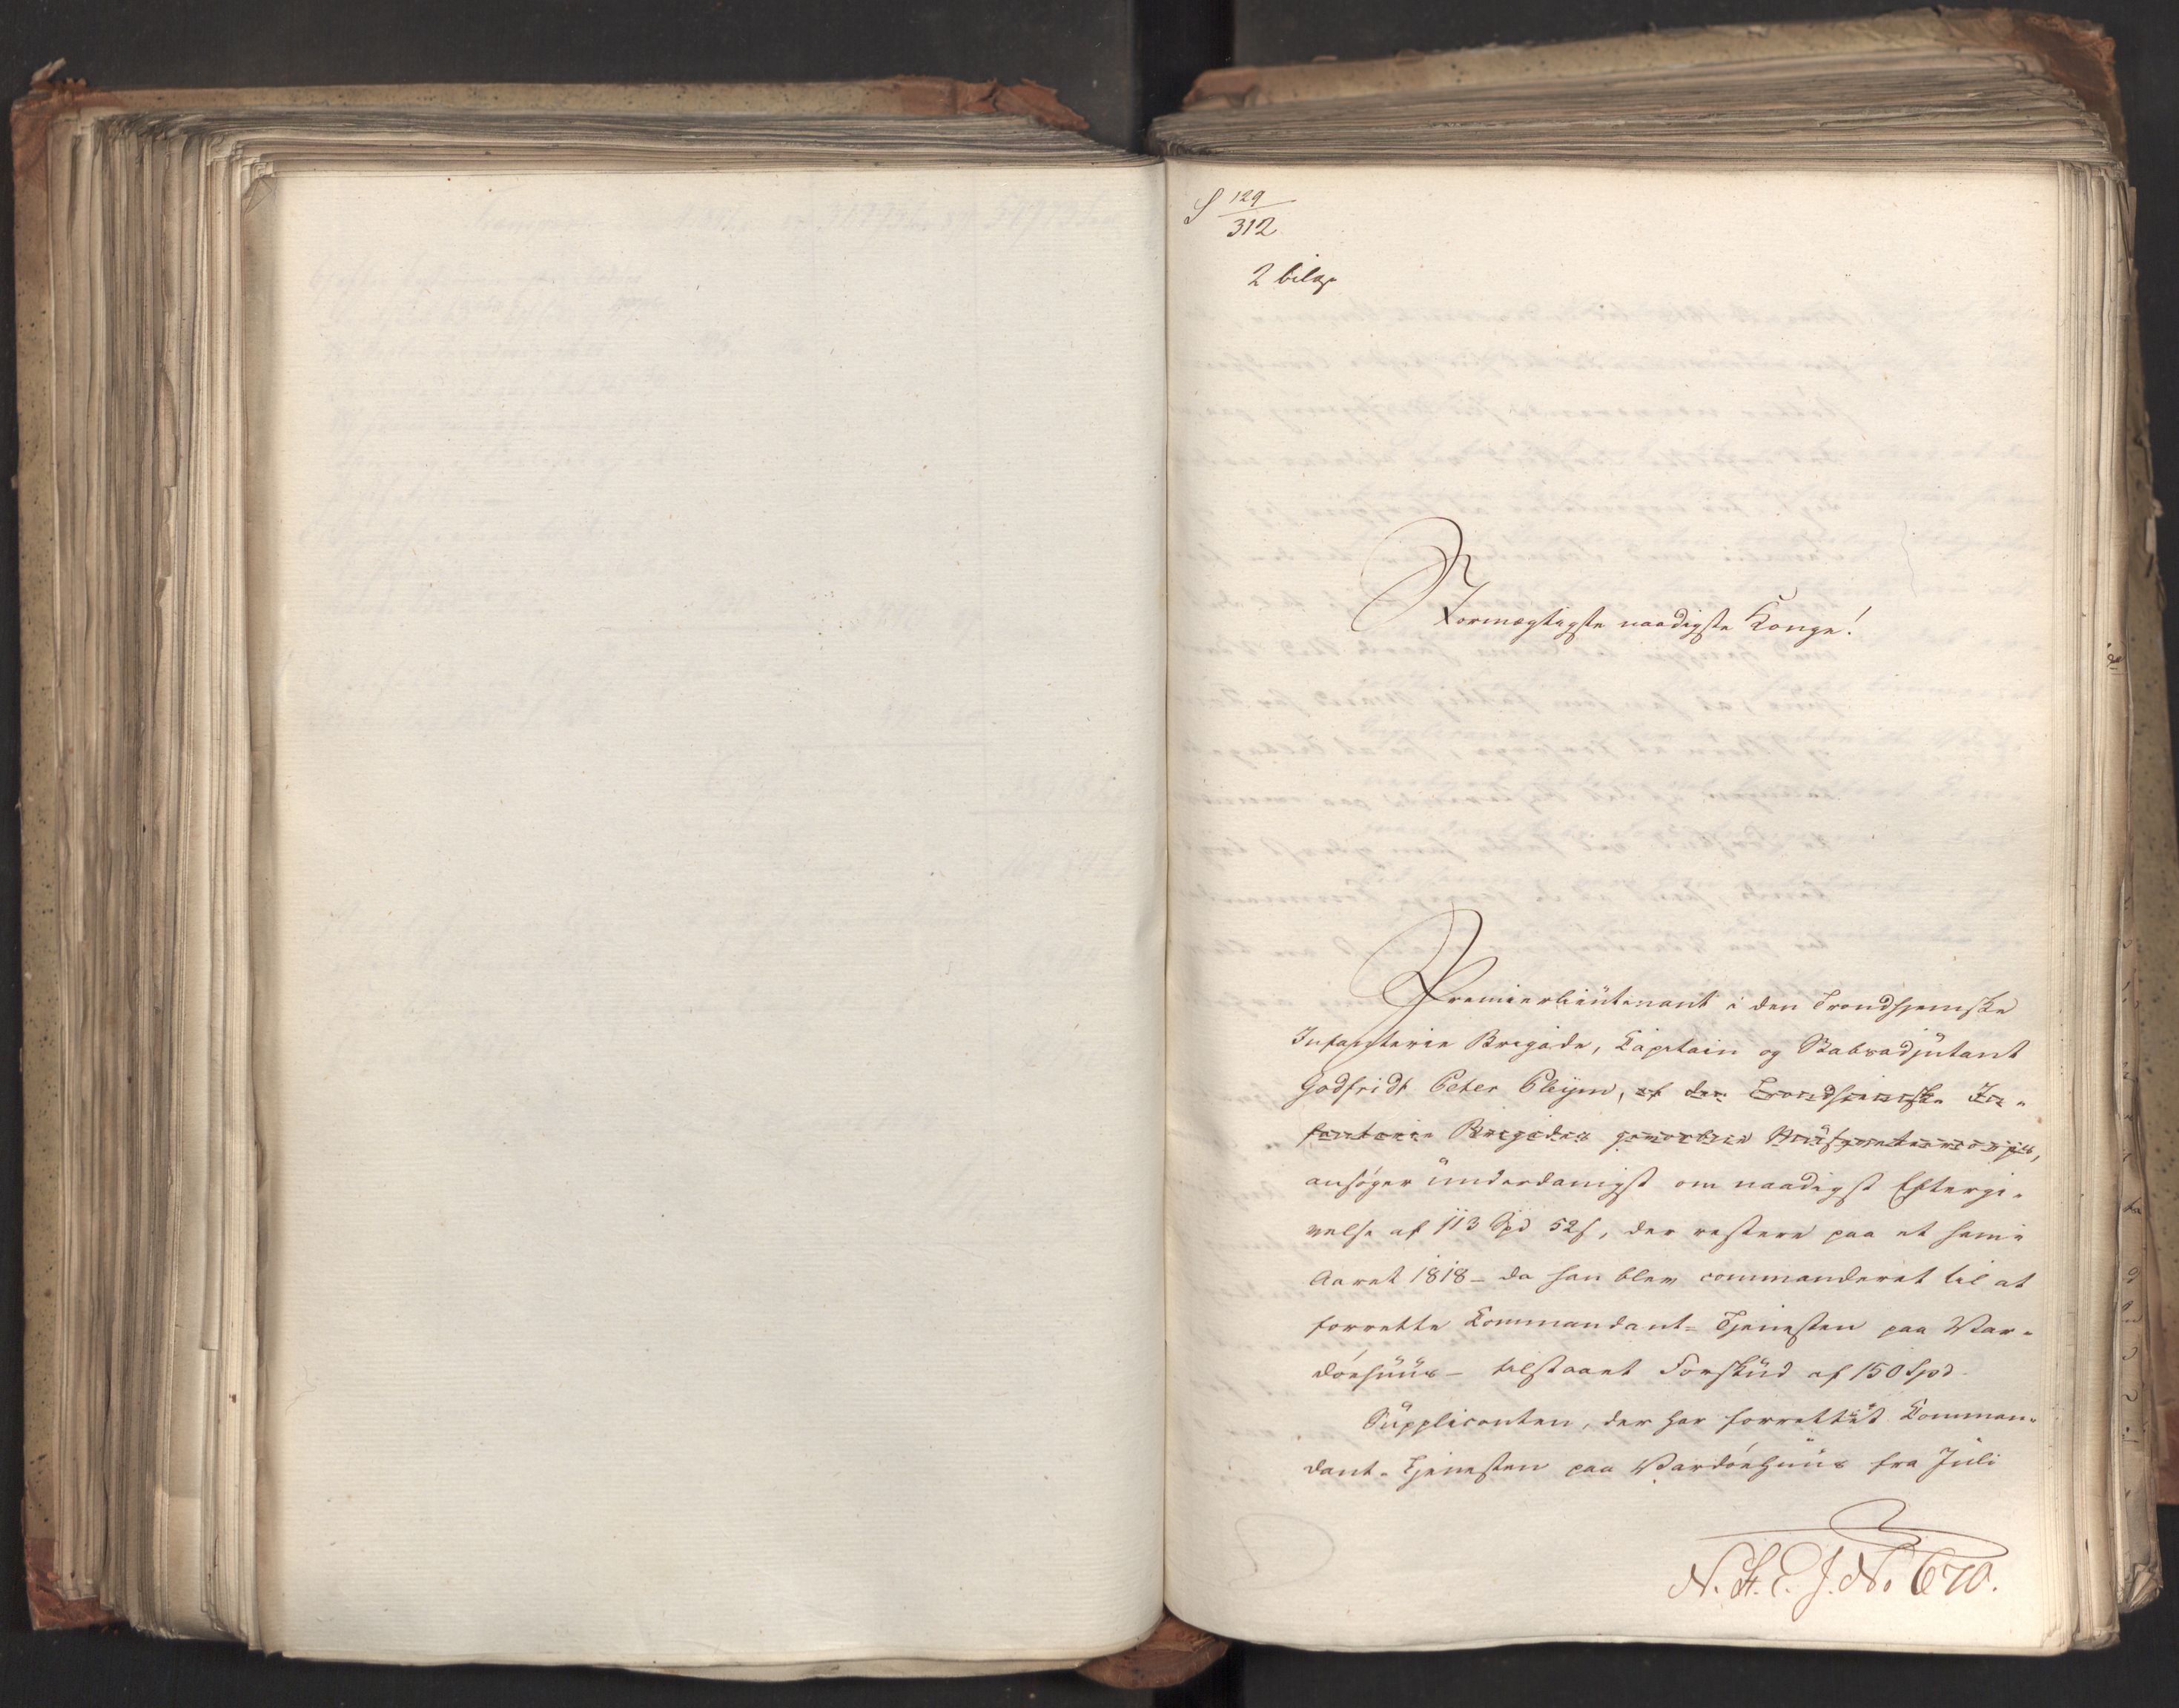 S 129
312
2 bilag
Stormægtigste naadigste Konge!
Premierlieutenant i den Trondhjemske
Infanterie Brigade, Capitain og Stabsadjutant
Godfridt Peter Pleym, af den Trondhjemske In-
fanterie Brigades gevorbne Musqueteercorps,
ansøger underdanigst om naadigst Eftergi-
velse af 113 Spd 52 s, der restere paa et ham i
Aaret 1818 - da han blev commanderet til at
forrette Commandant-Tjenesten paa War-
døehuus - tilstaaet Forskud af 150 Spd.
Supplicanten, der har forrettet Comman-
dant-Tjenesten paa Wardøehuus fra Juli
N. St. E. J. No 670.